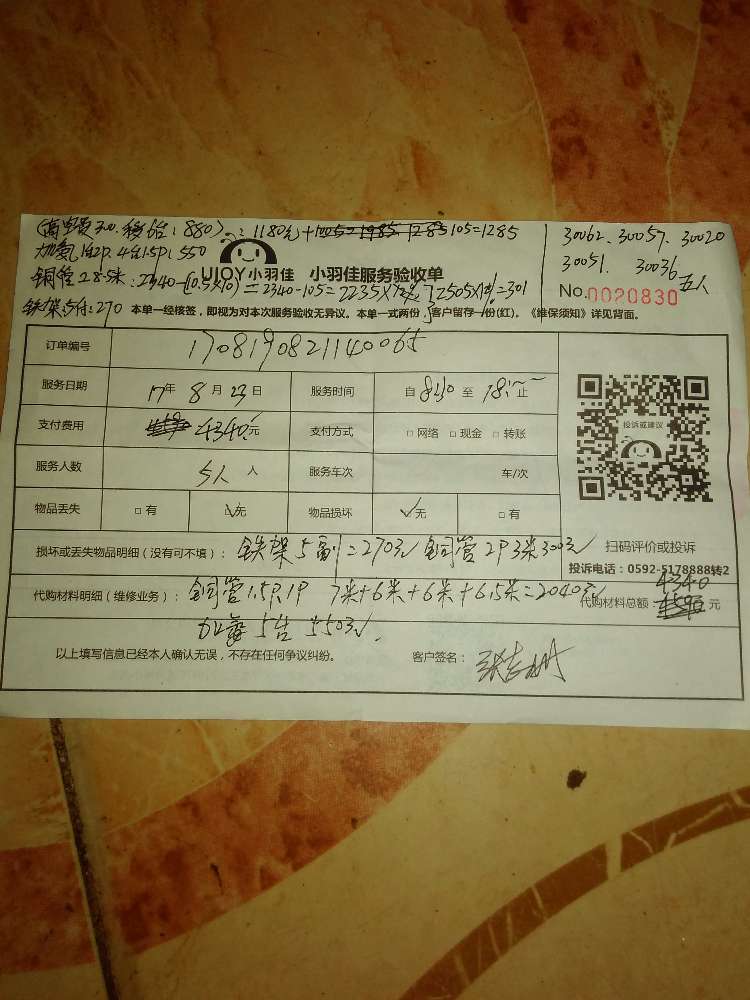 (高空费300.移5台:880).:1180元+ 105=1285
30062.30057.30020
加氨1台2P.4台1.5P:550
30051. 30036 五人
铜管28.5米:2340-(10.5X10)=2340-105=2235
UJOY 小羽佳 小羽佳服务验收单
No.0020830
铁架5付:270 本单一经核签,即视为对本次服务验收无异议。本单一式两份,客户留存一份(红)。《维保须知》详见背面。
订单编号 1708190821140065
服务日期 17年 8月 23日 服务时间 自 8:30 至 18: 止
支付费用 4340元 支付方式 □网络 □现金 □转账
投诉或建议
服务人数 5人 人 服务车次 车/次
物品丢失 □有 √无 物品损坏 √无 □有
损坏或丢失物品明细(没有可不填): 铁架5副=270元 铜管2P3米300元
扫码评价或投诉
投诉电话:0592-5178888转2
代购材料明细(维修业务): 铜管1.5P.1P 7米+6米+6米+6.5米=2040元
代购材料总额: 4340 元
5台 550元
以上填写信息已经本人确认无误,不存在任何争议纠纷。 客户签名: